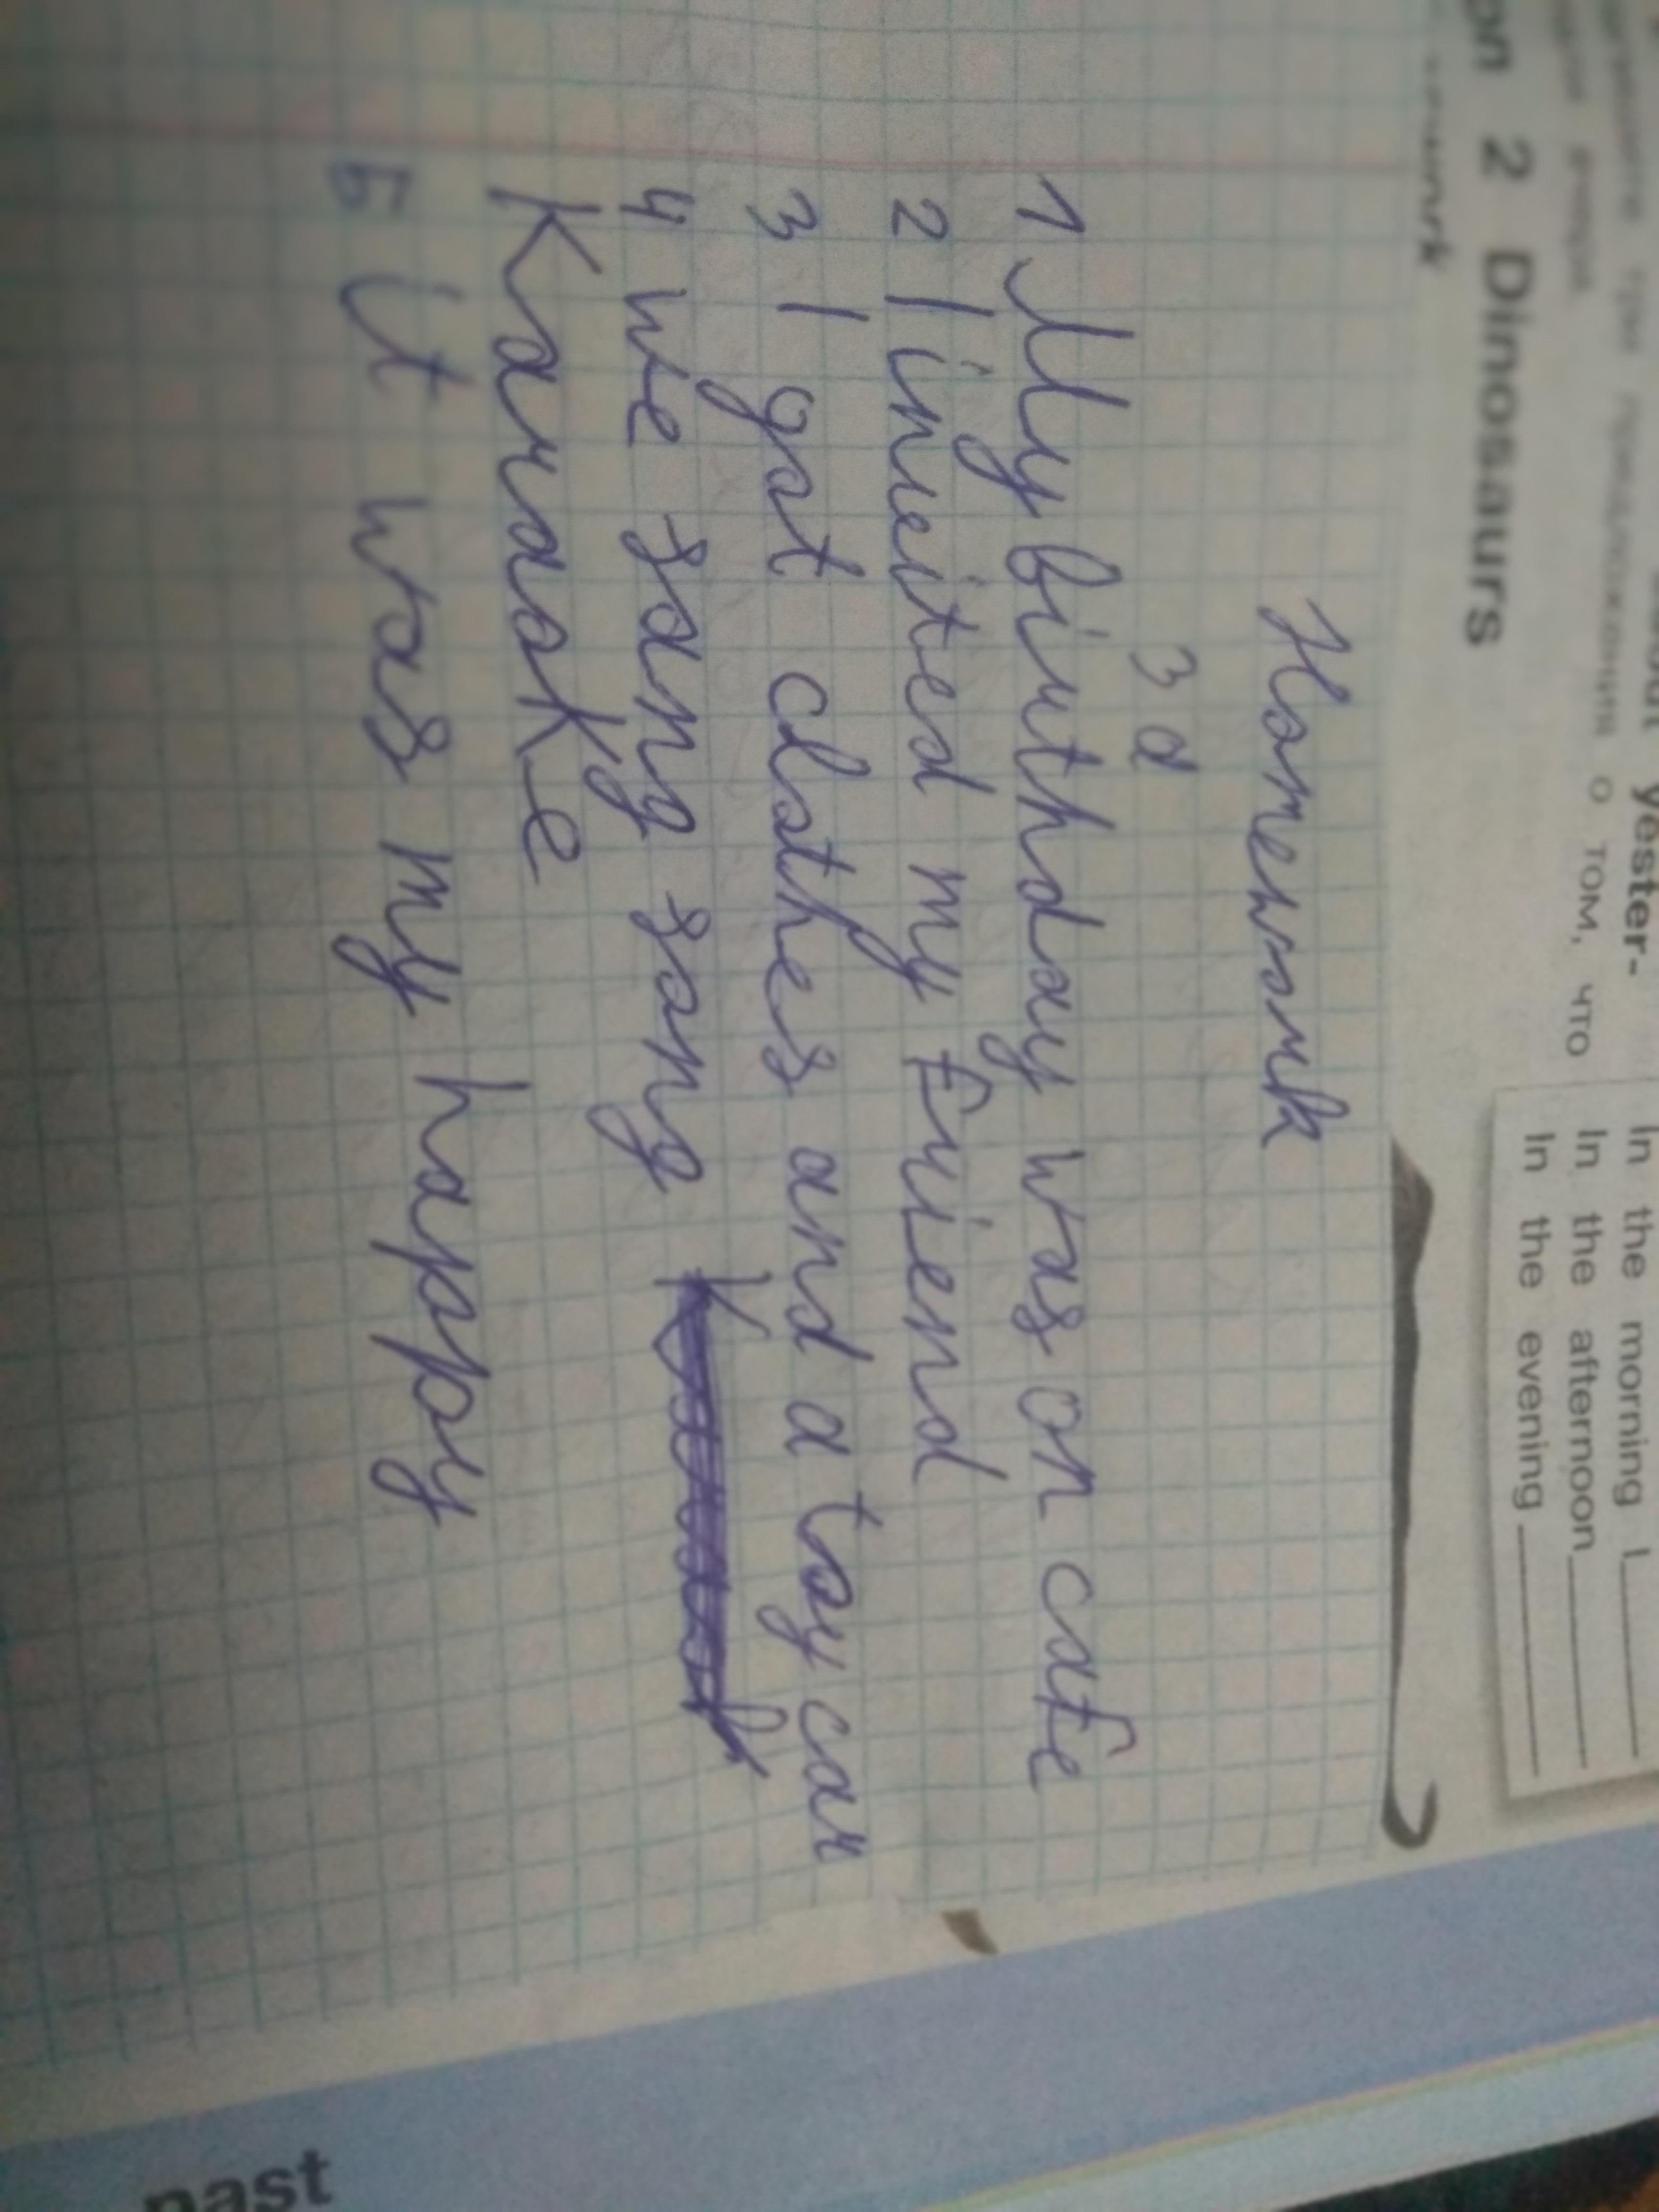 yester-
три предложения о том, что
In the morning I
In the afternoon
In the evening
2 Dinosaurs
Homework
3 a
1 My birthday was on cafe
2 I inveited my friend
3 I got clothes and a toy car
4 we sang song
Karaoke
5 it was my happy
past